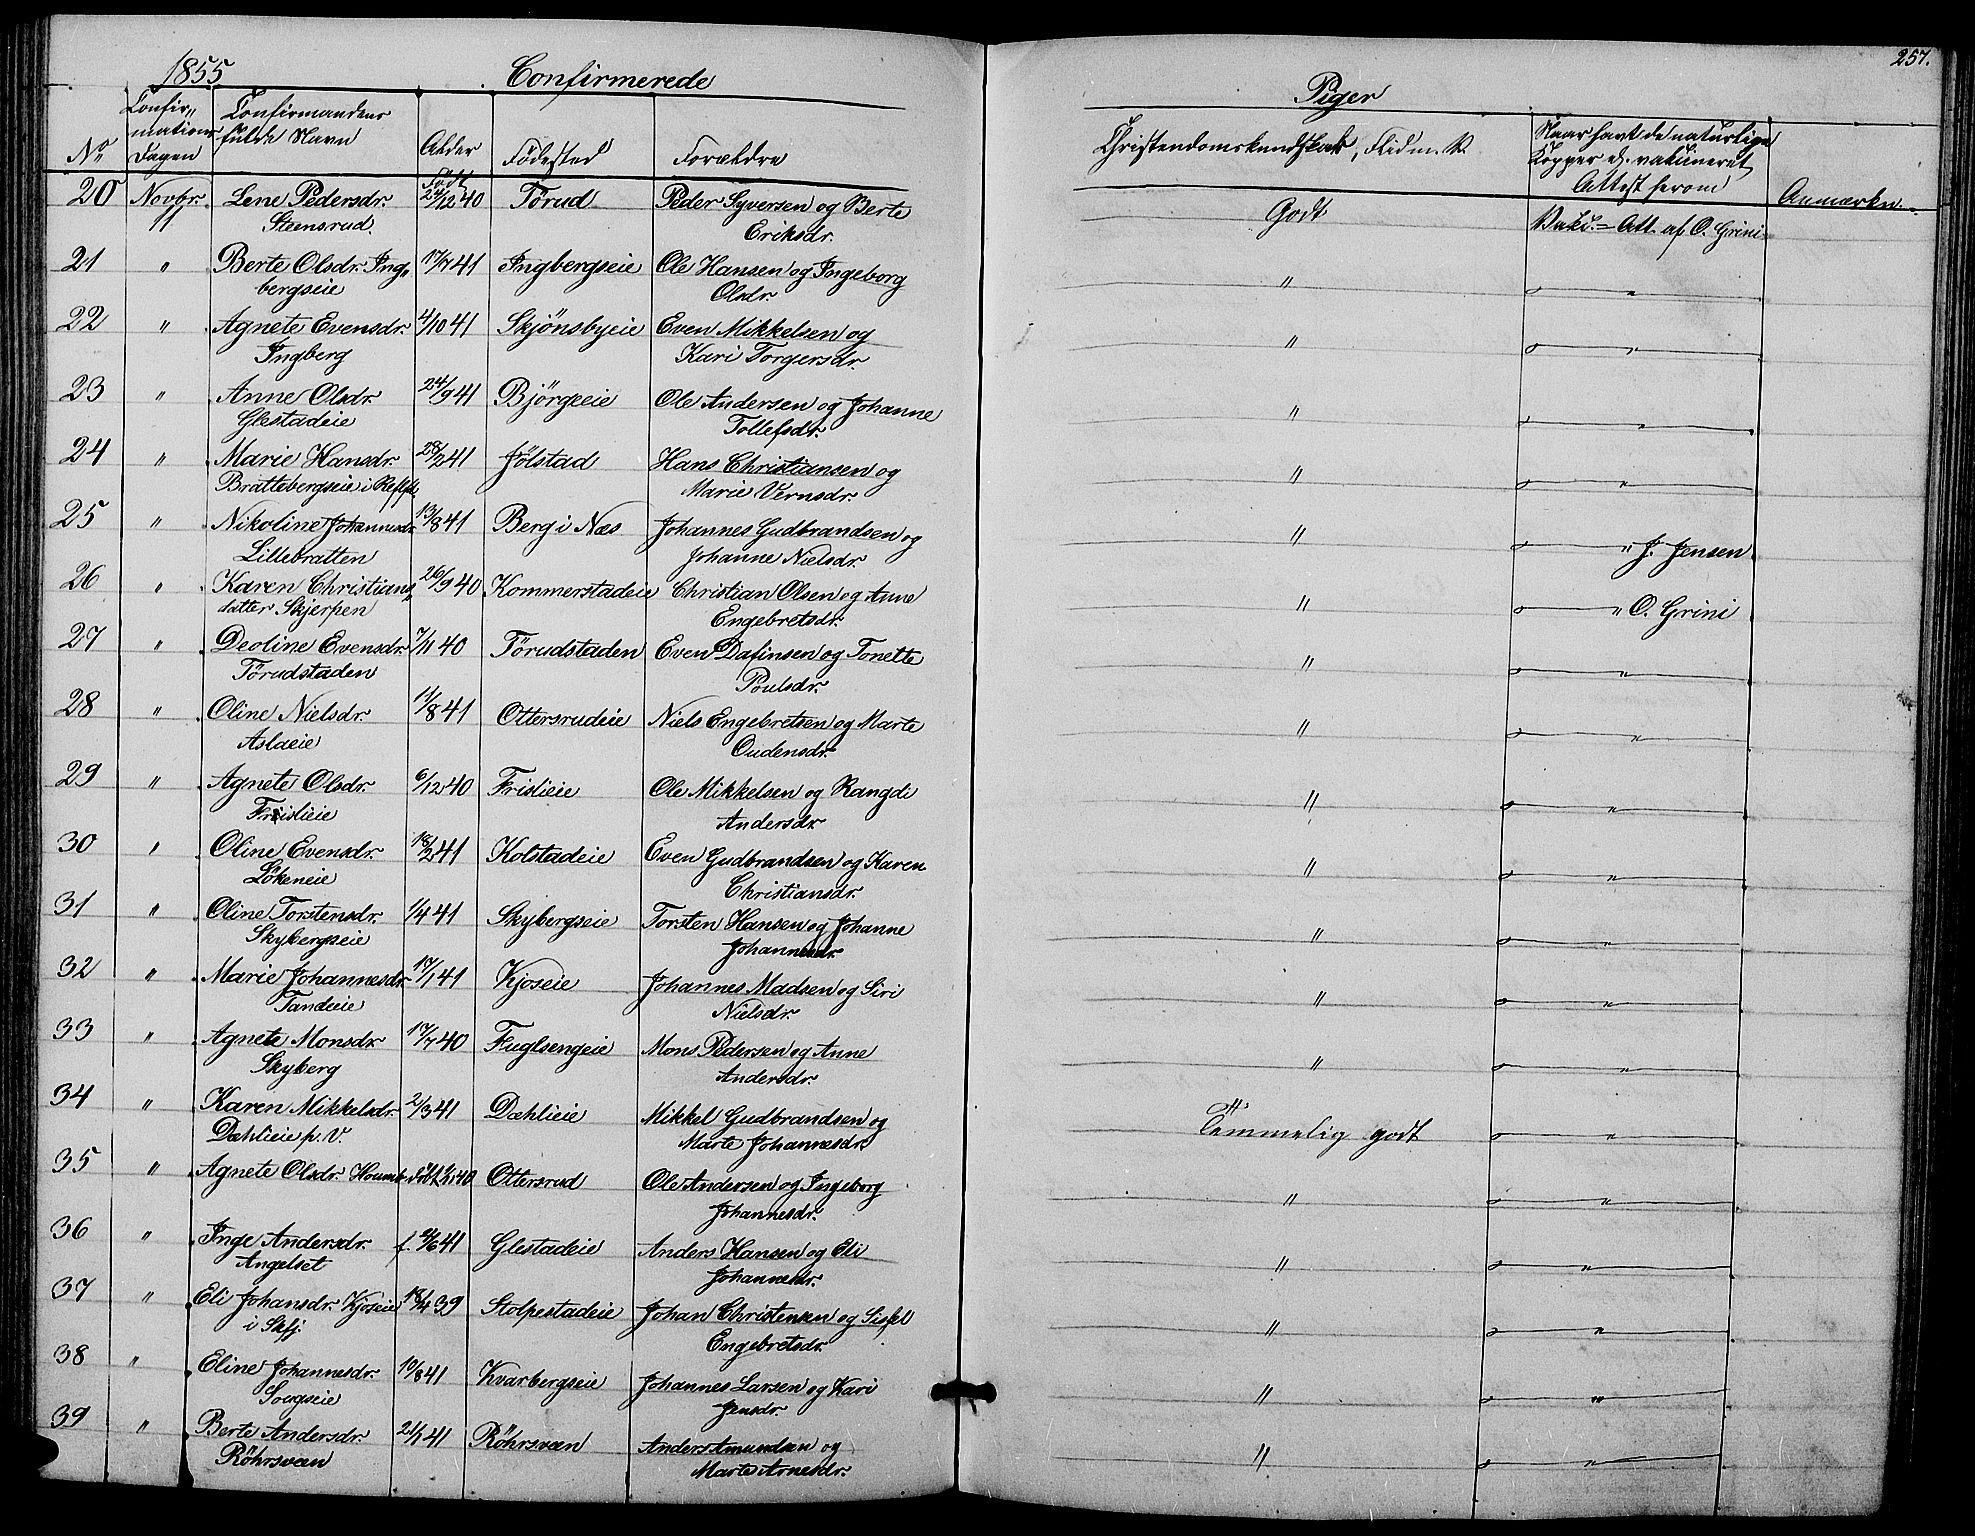 1855 Confirmerede
Piger
257.
No
Confir-
mations
Dagen
Confirmandens
fulde Navn
Alder
Fødested
Forældre
Christendomskundskab, Flid m. V.
Naar havt de naturlige
Kopper el. vakcineret
Attest herom
Anmærkn.
Født
20 Novbr. Lene Pedersdr. 24/12 40 Törud Peder Syversen og Berte Godt Vakc. = Att. af O. Grini
11 Steensrud. Eriksdr.
21 " Berte Olsdr. Ing- 17/7 41 Ingbergseie Ole Hansen og Ingeborg " "
bergseie Olsdr.
22 " Agnete Evensdr. 4/10 41 Skjönsbyeie Even Mikkelsen og " "
Ingberg Kari Torgersdr.
23 " Anne Olsdr. 24/9 41 Bjørgeeie Ole Andersen og Johanne " "
Glestadeie Tollefsdr.
24 " Marie Hansdr. 28/2 41 Jölstad Hans Christiansen og " "
Brattebergseie i Marie Vernsdr.
25 " Nikoline Johannesdr. 13/8 41 Berg i Næs Johannes Gudbrandsen og " " J. Jensen
Lillebratten Johanne Nielsdr.
26 " Karen Christians 26/9 40 Kommerstadeie Christian Olsen og Anne " " O. Grini
datter Skjerpen Engebretsdr.
27 " Deoline Evensdr. 7/11 40 Törudstaden Even Dafinsen og Tonette " "
Törudstaden Poulsdr.
28 " Oline Nielsdr. 11/8 41 Ottersrudeie Niels Engebretsen og Marte " "
Aslaeie Oudensdr.
29 " Agnete Olsdr. 6/12 40 Frislieie Ole Mikkelsen og Rangdi " "
Frislieie Andersdr.
30 " Oline Evensdr. 18/2 41 Kolstadeie Even Gudbrandsen og Karen " "
Lökeneie Christiansdr.
31 " Oline Torstensdr. 1/4 41 Skybergseie Torsten Hansen og Johanne " "
Skybergseie Johannesdr.
32 " Marie Johannesdr. 17/1 41 Kjoseie Johannes Madsen og Siri " "
Tandeie Nielsdr.
33 " Agnete Monsdr. 17/7 40 Fuglsengeie Mons Pedersen og Anne " "
Skyberg Andersdr.
34 " Karen Mikkelsdr. 2/3 41 Dæhlieie Mikkel Gudbrandsen og Temmelig godt "
Dæhlieie p. V. Marte Johannesdr.
35 " Agnete Olsdr. Ottersrud Ole Andersen og Ingeborg " "
Johannesdr.
36 " Inge Andersdr. Glestadeie Anders Hansen og Eli " "
Angelset Johannesdr.
37 " Eli Johansdr. Kjoseie 18/4 39 Stolpestadeie Johan Christensen og Sissel " "
i Skfj. Engebretsdr.
38 " Eline Johannesdr. 10/8 41 Kvarbergseie Johannes Larsen og Kari " "
Jensdr.
39 " Berte Andersdr. 21/1 41 Röhrsveen Anders Amundsen og " "
Röhrsveen Marte Arnesdr.